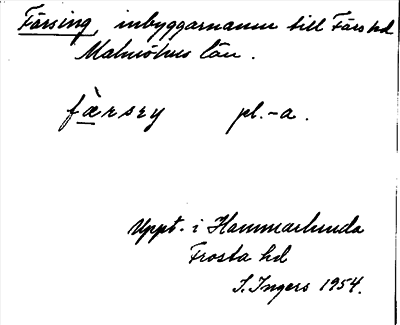 Färsing inbyggarnamn till Färs hd
Malmöhus län.
fàrsıŋ pl. -a.
Uppt. i Hammarlunda
Frosta hd
I. Ingers 1954.